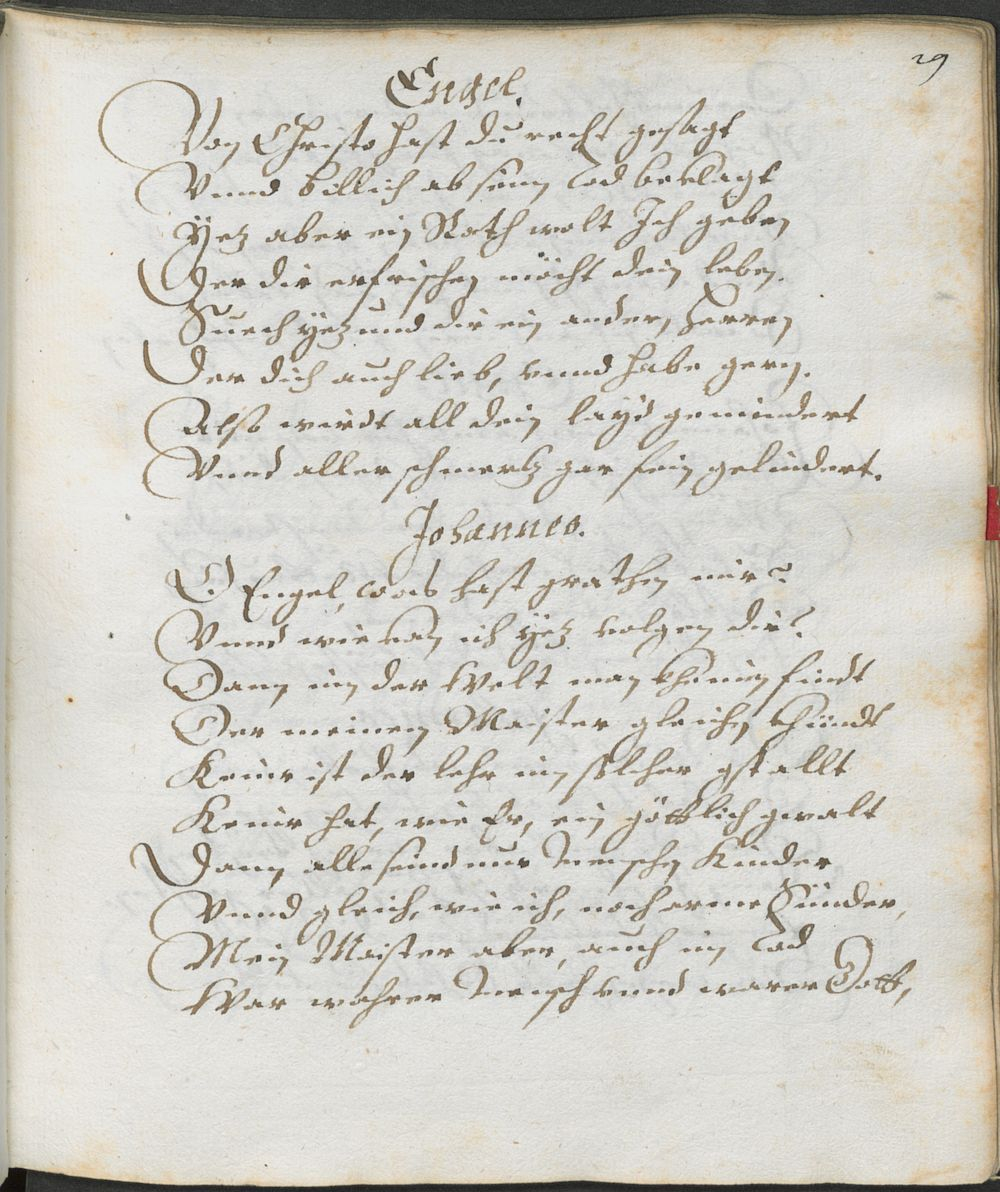 29
Engel.
Von Christo hast du recht gesagt
Vnnd billich ab seim Tod beklagt
Yetz aber ein Rath wolt Ich geben
Der dir erfrischen möcht dein leben.
Suech yetzund dir ein andern Herren
Der dich auch lieb, vnnd habe gern.
Also wirdt all dein layd gemindert
Vnnd aller schmertz gar fein gelindert.
Johannes.
O Engel, was hast grathen mir?
Vnnd wie kan ich yetz volgen dir?
Dann inn der Welt man kheinen findt
Der meinem Maister gleichen khündt
Keinr ist der lehr inn solcher gstallt
Keinr hat, wie Er, ein göttlich gwalt
Dann alle seind nur Menschen Kinder
Vnnd gleich, wie ich, noch arme Sünder,
Mein Maister aber, auch im Tod
War wahrer Mensch vnnd warer Gott,